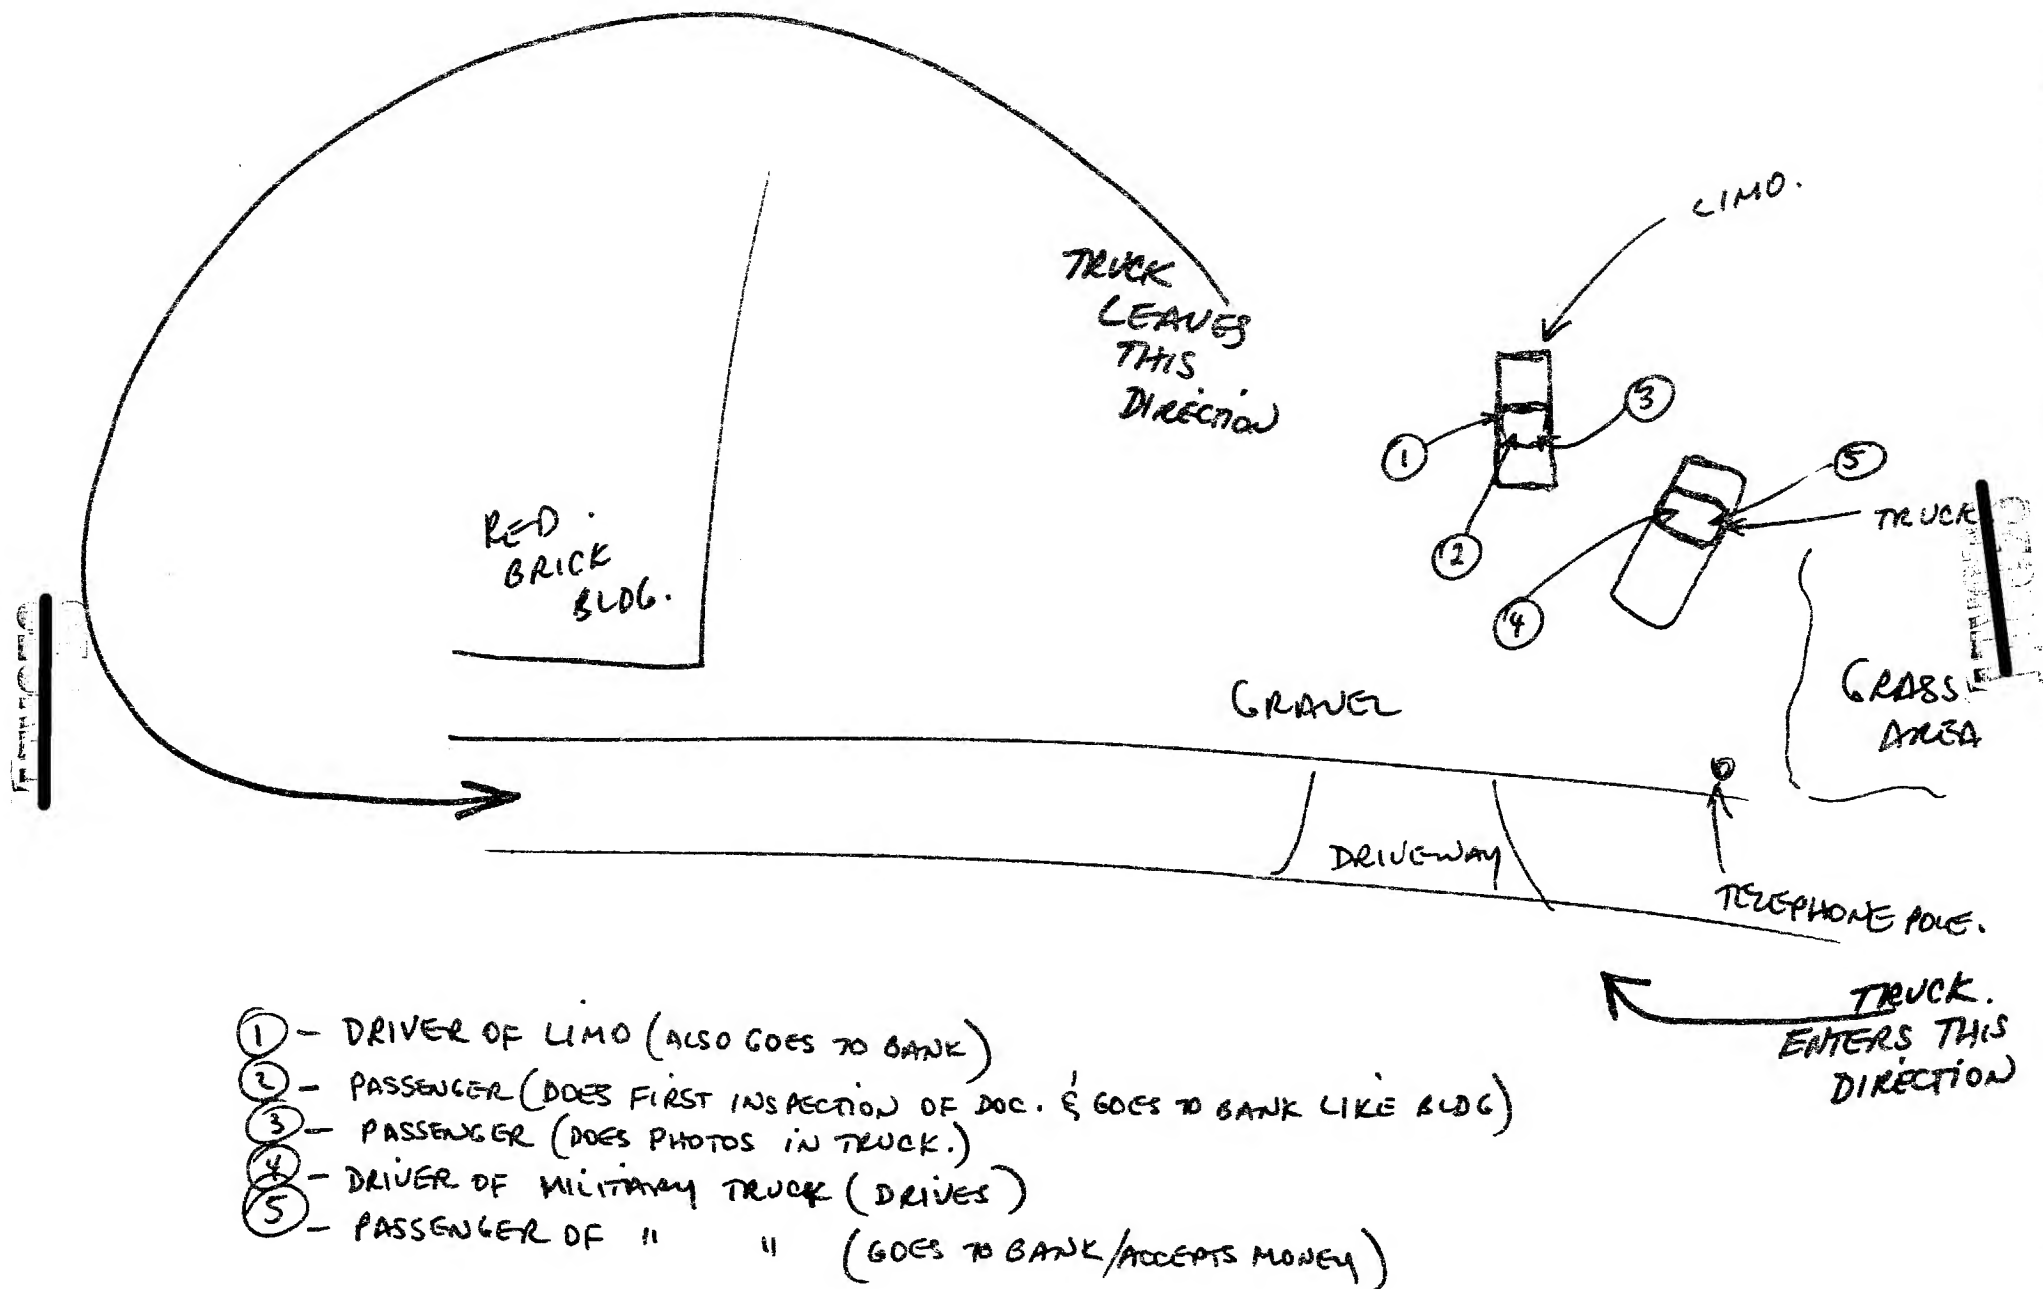 LIMO.
TRUCK
LEAVES
THIS
DIRECTION
3
1
5
2
TRUCK
4
RED
BRICK
BLDG.
GRAVEL
GRASS
AREA
DRIVEWAY
TELEPHONE POLE.
TRUCK.
ENTERS THIS
DIRECTION
1 - DRIVER OF LIMO (ALSO GOES TO BANK)
2 - PASSENGER (DOES FIRST INSPECTION OF DOC. & GOES TO BANK LIKE BLDG)
3 - PASSENGER (DOES PHOTOS IN TRUCK.)
4 - DRIVER OF MILITARY TRUCK (DRIVES)
5 - PASSENGER OF " " (GOES TO BANK/ACCEPTS MONEY)